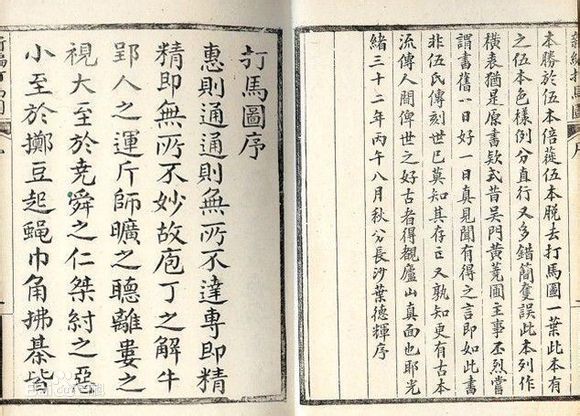 本勝於伍本倍蓰伍本脫去打馬圖一葉此本有
之伍本色樣例分直行又多錯簡奪誤此本列作
橫表猶是原書欵式昔吳門黃蕘圃主事丕烈嘗
謂書舊一日好一日真見聞有得之言即如此書
非伍氏傳刻世已莫知其存亡又孰知更有古本
流傳人間俾世之好古者得觀廬山真面也耶光
緒三十二年丙午八月秋分長沙葉德輝序
打馬圖序
惠則通通則無所不達專即精
精即無所不妙故庖丁之解牛
郢人之運斤師曠之聰離婁之
視大至於堯舜之仁桀紂之惡
小至於擲豆起蠅巾角拂棊皆